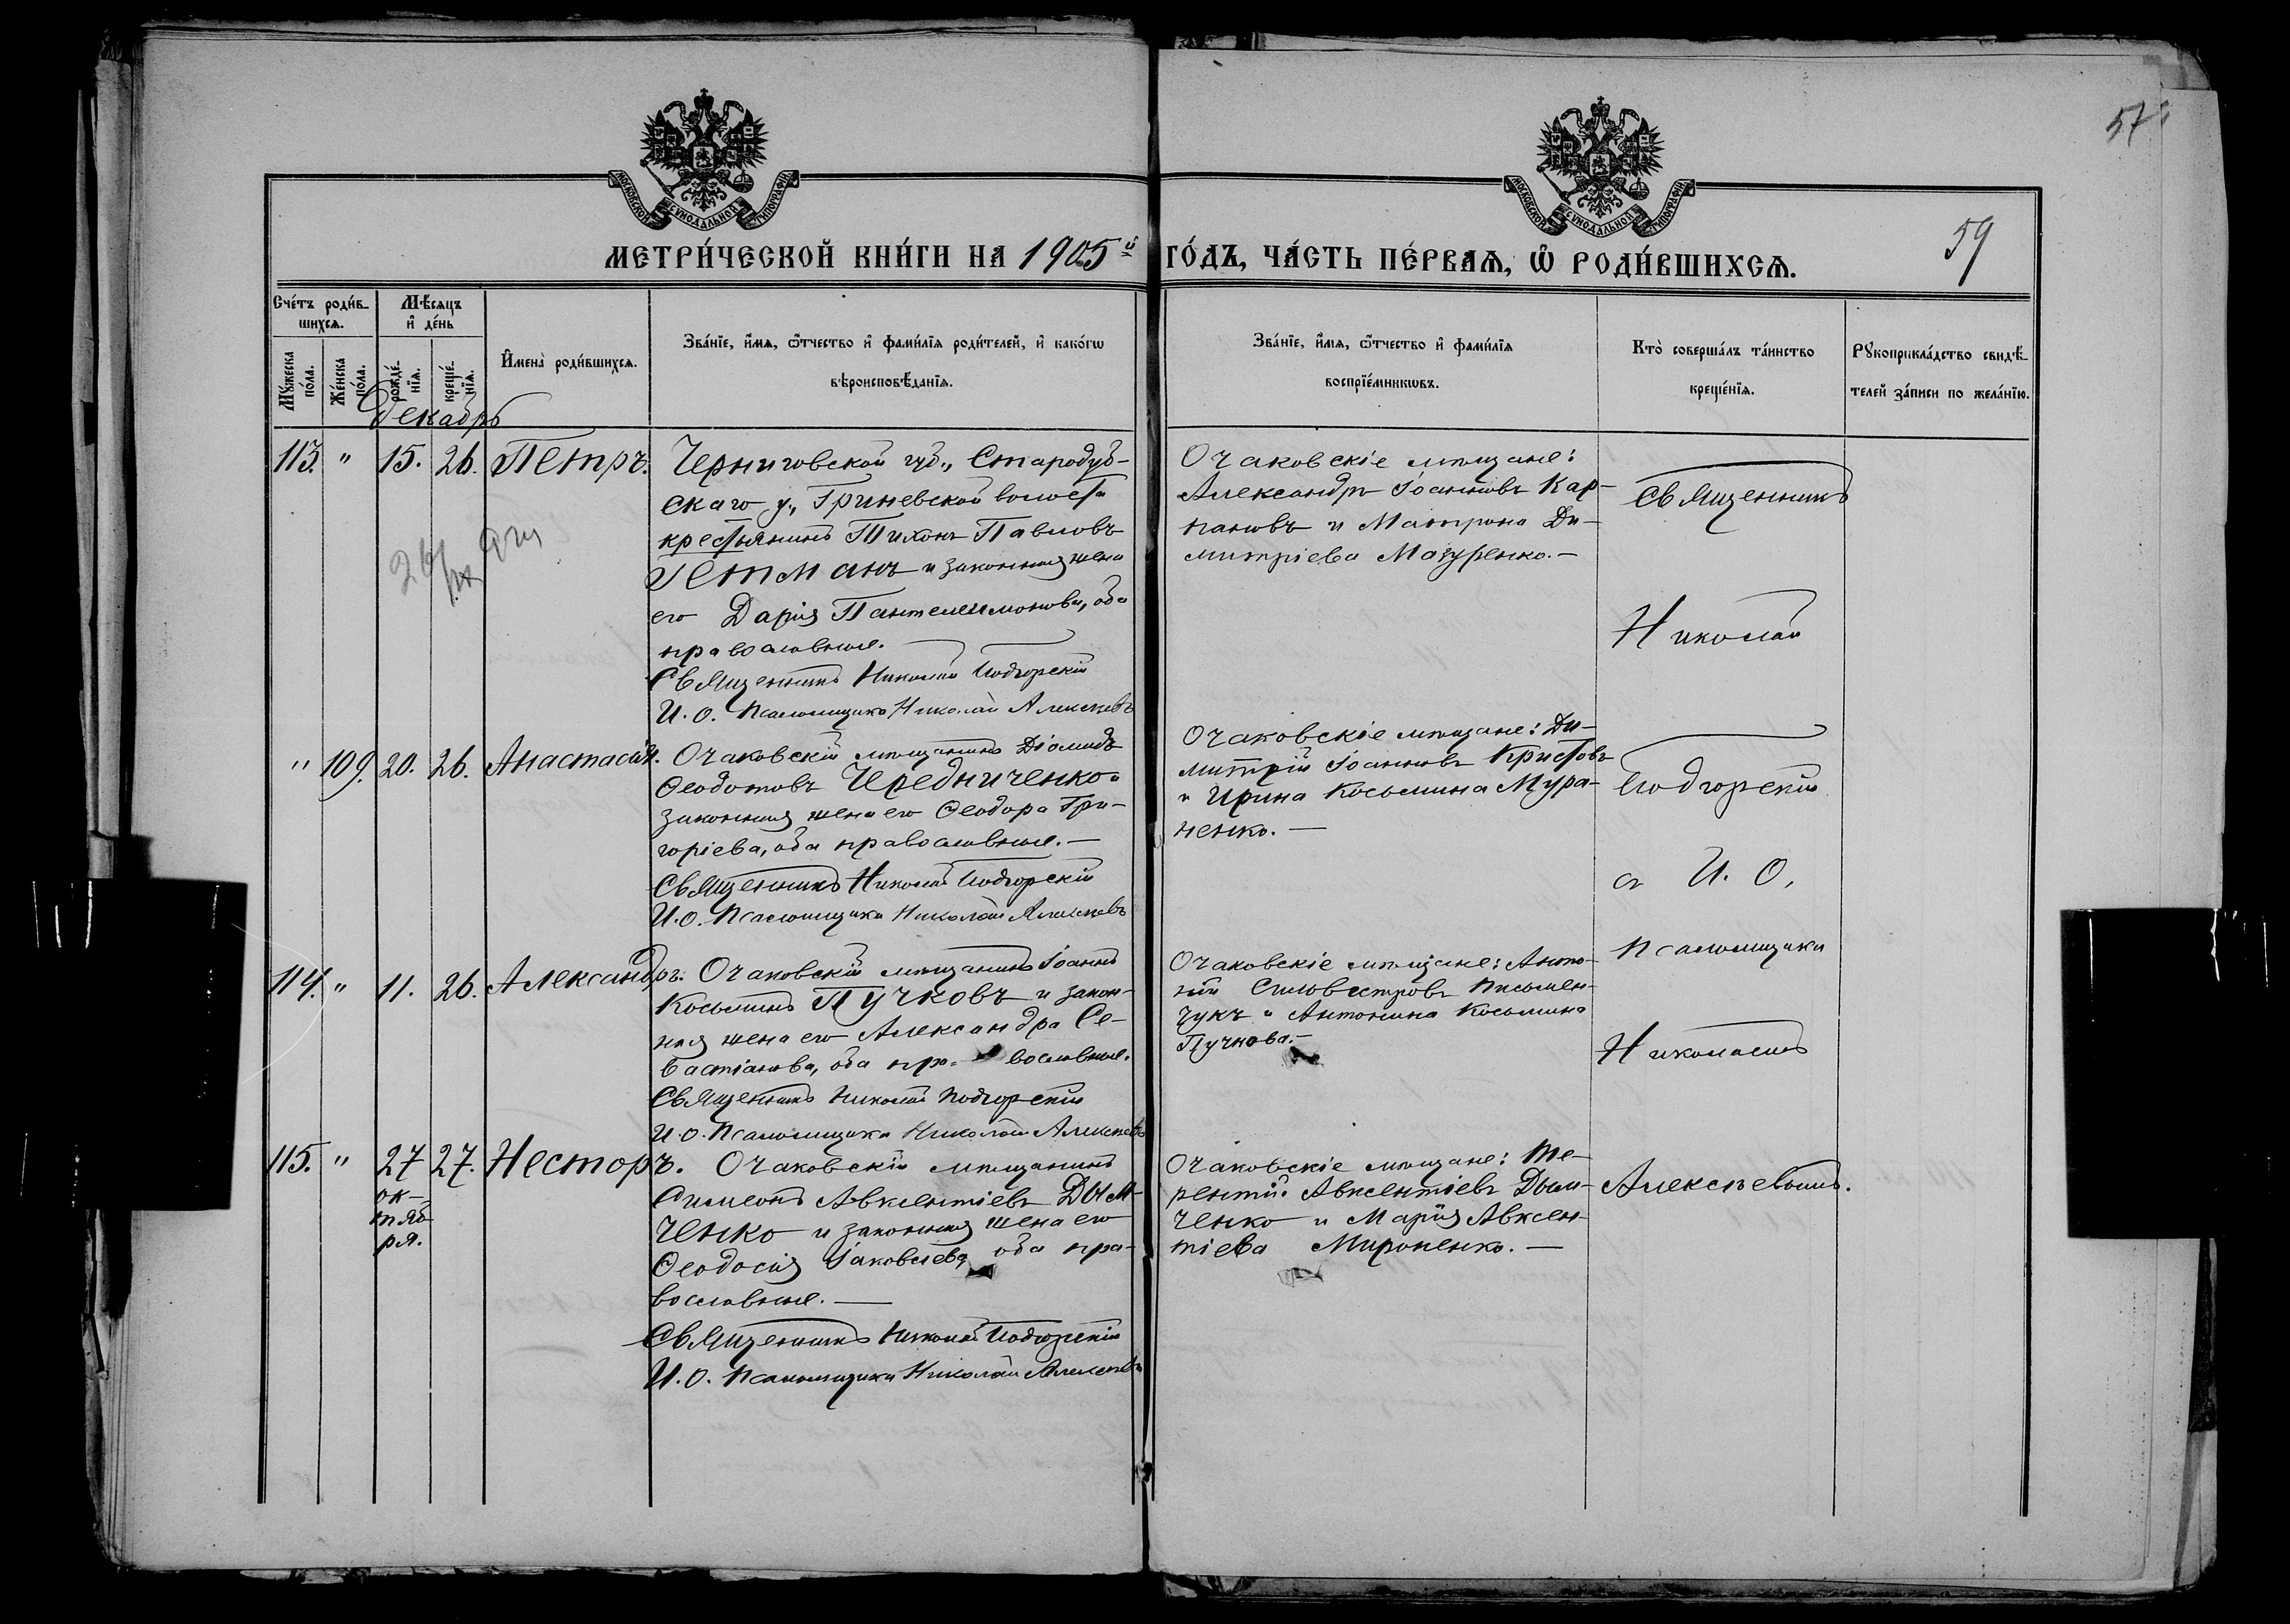 57
МОСКОВСКОЙ СѴНОДАЛЬНОЙ ТИПОГРАФІИ
МОСКОВСКОЙ СѴНОДАЛЬНОЙ ТИПОГРАФІИ
МЕТРИ́ЧЕСКОЙ КНИ́ГИ НА 1905й ГО́ДЪ, ЧА́СТЬ ПЕ́РВАѦ, Ѽ РОДИ́ВШИХСѦ.
59
Сче́тъ роди́в-
шихсѧ.
Мꙋ́жеска по́ла.
Же́нска по́ла.
Мѣ́сѧцъ
и҆ де́нь
рожде́-
нїѧ.
креще́-
нїѧ.
И҆мена̀ роди́вшихсѧ.
Зва́нїе, и҆́мѧ, ѻ҆́тчество и҆ фами́лїѧ роди́телей, и҆ како́гѡ
вѣроисповѣ́данїѧ.
Зва́нїе, и҆́мѧ, ѻ҆́тчество и҆ фами́лїѧ
воспрїе́мникѡвъ.
Кто̀ соверша́лъ та́инство
креще́нїѧ.
Рꙋкоприкла́дство свидѣ́-
телей за́писи по жела́нїю.
Декабрь
113. " 15. 26. Петръ.
Черниговской губ., Стародуб-
скаго у., Гриневской волости
крестьянинъ Тихонъ Павловъ
Гетманъ и законная жена
его Дарія Пантелеимонова, оба
православные.
Священникъ Николай Подгорскій
И. О. Псаломщика Николай Алексѣевъ
Очаковскіе мѣщане:
Александръ Іоанновъ Кар-
пановъ и Матрона Ди-
митріева Мазуренко.—
" 109. 20. 26. Анастасія.
Очаковскій мѣщанинъ Діомидъ
Ѳеодотовъ Чередниченко и
законная жена его Ѳеодора Гри-
горіева, оба православные.—
Священникъ Николай Подгорскій
И. О. Псаломщика Николай Алексѣевъ
Очаковскіе мѣщане: Ди-
митрій Іоанновъ Кристовъ
и Ирина Косьмина Мура-
ненко.—
114. " 11. 26. Александръ.
Очаковскій мѣщанинъ Іоаннъ
Косьминъ Пучковъ и закон-
ная жена его Александра Се-
бастіанова, оба пра- вославные.
Священникъ Николай Подгорскій
И. О. Псаломщика Николай Алексѣевъ
Очаковскіе мѣщане: Анто-
ній Сильвестровъ Письмен-
чукъ и Антонина Косьмина
Пучкова.—
115. " 27 октября. 27. Несторъ.
Очаковскій мѣщанинъ
Симеонъ Авксентіевъ Дым-
ченко и законная жена его
Ѳеодосія Іаковлева, оба пра-
вославные.—
Священникъ Николай Подгорскій
И. О. Псаломщика Николай Алексѣевъ
Очаковскіе мѣщане: Те-
рентій Авксентіевъ Дым-
ченко и Марія Авксен-
тіева Мироненко.—
Священникъ
Николай
Подгорскій
съ И. О.
Псаломщика
Николаемъ
Алексѣевымъ.